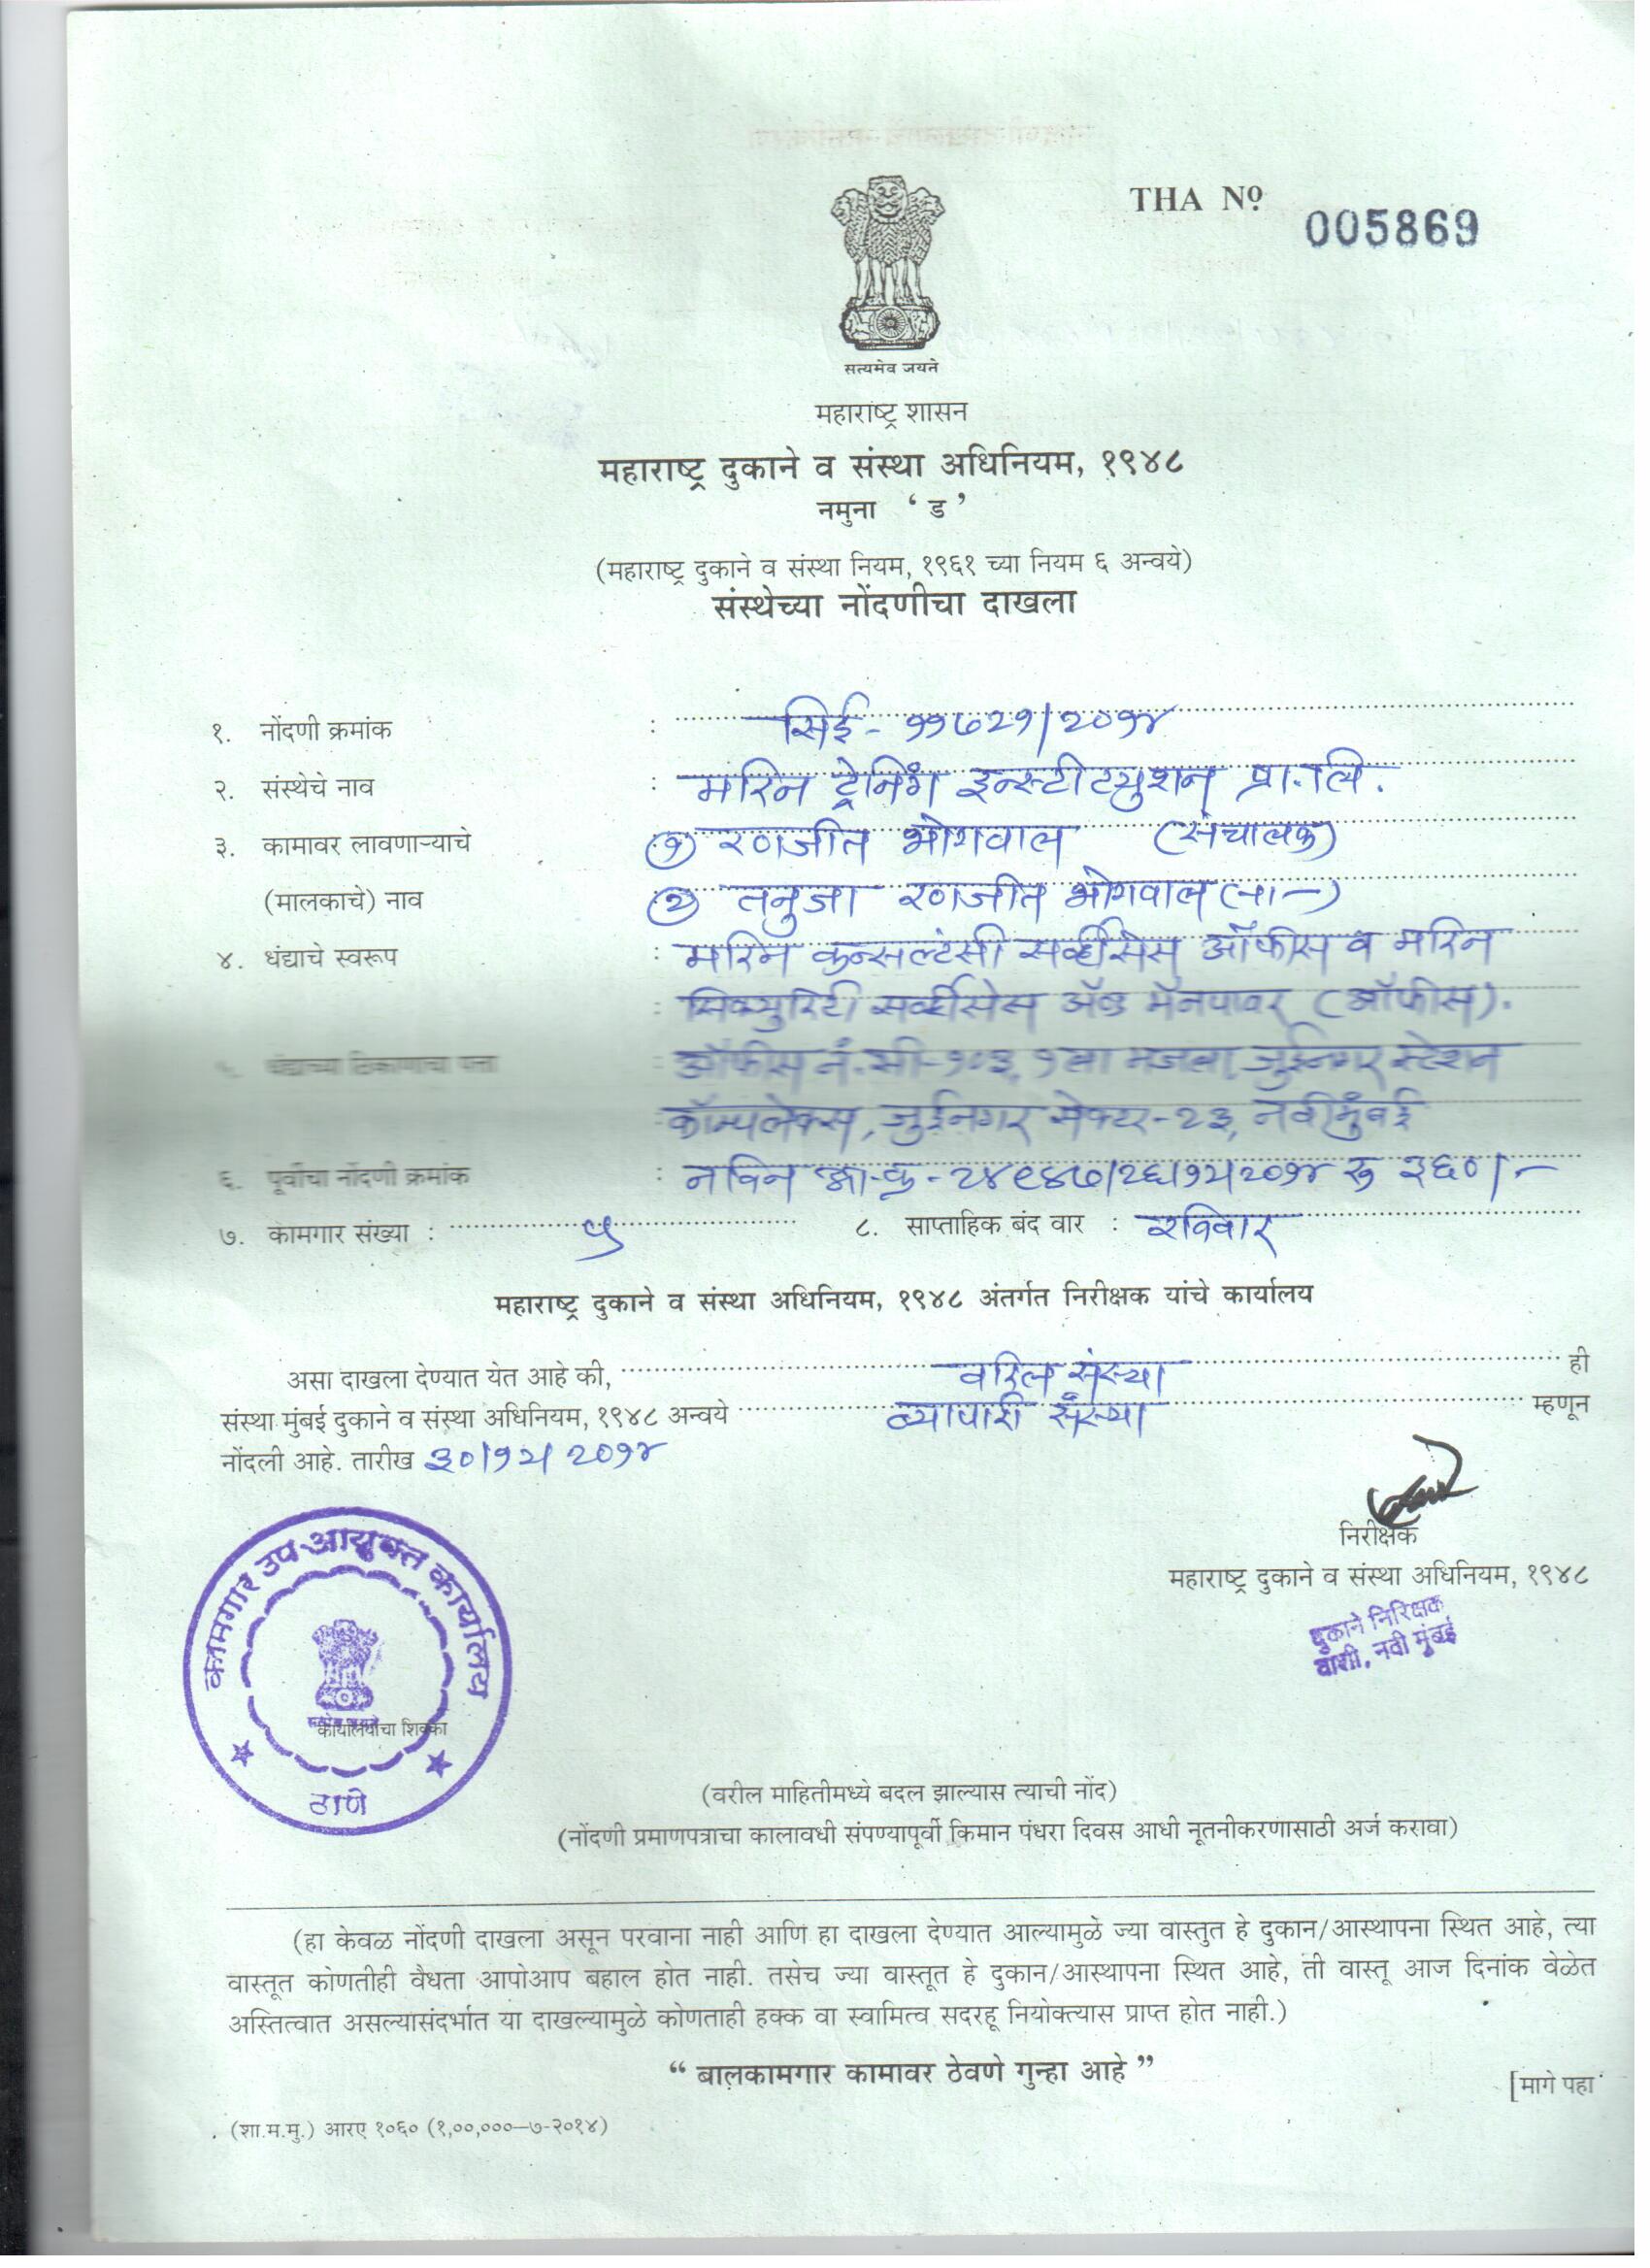 THA Nº 005869
सत्यमेव जयते
महाराष्ट्र शासन
महाराष्ट्र दुकाने व संस्था अधिनियम, १९४८
नमुना ‘ ड ’
(महाराष्ट्र दुकाने व संस्था नियम, १९६१ च्या नियम ६ अन्वये)
संस्थेच्या नोंदणीचा दाखला
१. नोंदणी क्रमांक : सिई - ११७२१/२०१४
२. संस्थेचे नाव : मरिन ट्रेनिंग इन्स्टीट्युशन प्रा. लि.
३. कामावर लावणाऱ्याचे (१) रणजीत भोगवाल (संचालक)
(मालकाचे) नाव (२) तनुजा रणजीत भोगवाल (-॥-)
४. धंद्याचे स्वरूप : मरिन कन्सल्टंसी सर्व्हीसेस ऑफीस व मरिन
: सिक्युरिटी सर्व्हीसेस अॅण्ड मॅनपावर (ऑफीस).
५. धंद्याच्या ठिकाणाचा पत्ता : ऑफीस नं. सी-१०३, १ला मजला, जुईनगर स्टेशन
कॉम्पलेक्स, जुईनगर सेक्टर-२३, नवीमुंबई
६. पूर्वीचा नोंदणी क्रमांक : नविन -२४९४७/२६/१२/२०१४ रु ३६०/-
७. कामगार संख्या : ५ ८. साप्ताहिक बंद वार : रविवार
महाराष्ट्र दुकाने व संस्था अधिनियम, १९४८ अंतर्गत निरीक्षक यांचे कार्यालय
असा दाखला देण्यात येत आहे की, वरिल संस्था ही
संस्था मुंबई दुकाने व संस्था अधिनियम, १९४८ अन्वये व्यापारी संस्था म्हणून
नोंदली आहे. तारीख ३०/१२/२०१४
निरीक्षक
महाराष्ट्र दुकाने व संस्था अधिनियम, १९४८
दुकाने निरिक्षक
वाशी, नवी मुंबई
कामगार उप आयुक्त कार्यालय
कार्यालयाचा शिक्का
ठाणे
(वरील माहितीमध्ये बदल झाल्यास त्याची नोंद)
(नोंदणी प्रमाणपत्राचा कालावधी संपण्यापूर्वी किमान पंधरा दिवस आधी नूतनीकरणासाठी अर्ज करावा)
(हा केवळ नोंदणी दाखला असून परवाना नाही आणि हा दाखला देण्यात आल्यामुळे ज्या वास्तुत हे दुकान/आस्थापना स्थित आहे, त्या
वास्तूत कोणतीही वैधता आपोआप बहाल होत नाही. तसेच ज्या वास्तूत हे दुकान/आस्थापना स्थित आहे, ती वास्तू आज दिनांक वेळेत
अस्तित्वात असल्यासंदर्भात या दाखल्यामुळे कोणताही हक्क वा स्वामित्व सदरहू नियोक्त्यास प्राप्त होत नाही.)
“ बालकामगार कामावर ठेवणे गुन्हा आहे ”
[मागे पहा
(शा.म.मु.) आरए १०६० (१,००,०००—७-२०१४)